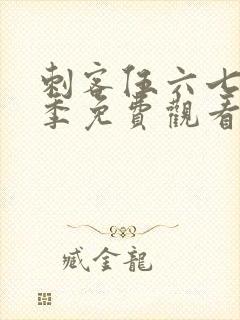 刺客伍六七
季免費觀看
臧金龍